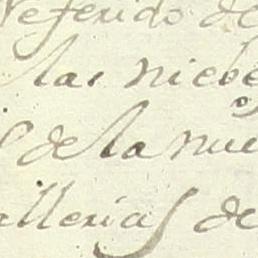 referido de
las niebe
de la nue
allerias de